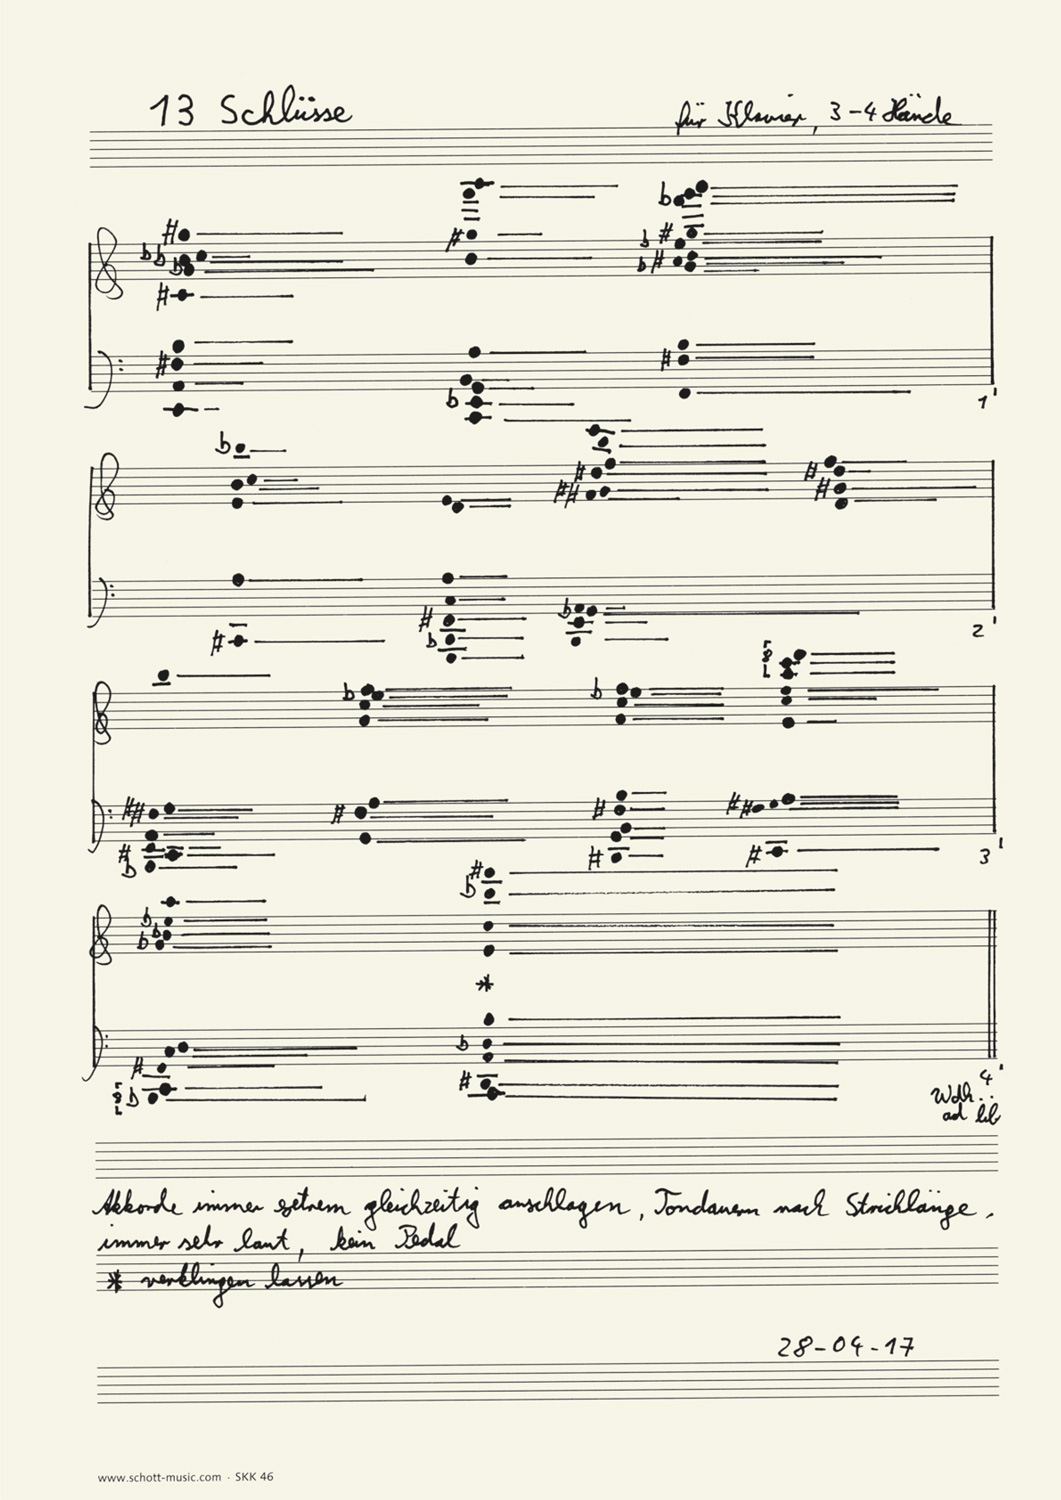 13 Schlüsse
für Klavier, 3-4 Hände
1'
2'
8
3'
4'
8
Wdh.
ad lib
Akkorde immer extrem gleichzeitig anschlagen, Tondauern nach Strichlänge.
immer sehr laut, kein Pedal
* verklingen lassen
28-04-17
www.schott-music.com · SKK 46